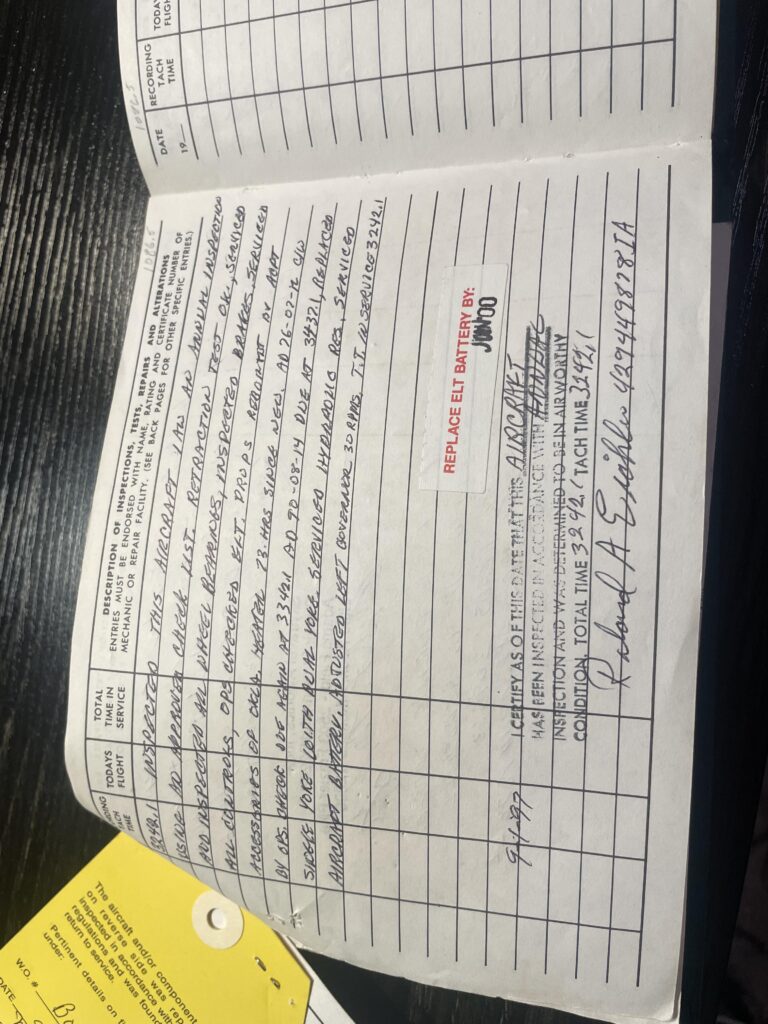 1086.5
DATE
19
RECORDING
TACH
TIME
TODAY
FLIGH
1086.5
RDING
TACH
TIME
TODAYS
FLIGHT
TOTAL
TIME IN
SERVICE
DESCRIPTION OF INSPECTIONS, TESTS, REPAIRS AND ALTERATIONS
ENTRIES MUST BE ENDORSED WITH NAME, RATING AND CERTIFICATE NUMBER OF
MECHANIC OR REPAIR FACILITY. (SEE BACK PAGES FOR OTHER SPECIFIC ENTRIES.)
3242.1 INSPECTED THIS AIRCRAFT AN ANNUAL INSPECTION
USING APPROVED CHECK LIST. RETRACTION TEST OK, SERVICED
AND INSPECTED ALL WHEEL BEARINGS, INSPECTED BRAKES SERVICED
ALL CONTROLS, OPS CHECKED ELT. PROPS
ACCESSORIES OF OKLA. HEATER 73. HRS SINCE NEW. AD 76-07-12 C/W
BY OPS. CHECK DUE AGAIN AT 3342.1 AD 90-08-14 DUE AT REPLACED
SINGLE YOKE WITH DUAL YOKE SERVICED HYDRAULIC RES, SERVICED
AIRCRAFT BATTERY. ADJUSTED LEFT GOVERNER 30 RPMS T.T. IN SERVICE 3242.1
REPLACE ELT BATTERY BY:
JUN 00
I CERTIFY AS OF THIS DATE THAT THIS AIRCRAFT
HAS BEEN INSPECTED IN ACCORDANCE WITH ANNUAL
INSPECTION AND WAS DETERMINED TO BE IN AIRWORTHY
CONDITION, TOTAL TIME 3242.1 TACH TIME 3242.1
9-1-97
A 439449878 IA
The aircraft and/or component
on reverse side was rep
inspected in accordance with
regulations and was found
return to service.
Pertinent details on f
under:
W.O. #
DATE